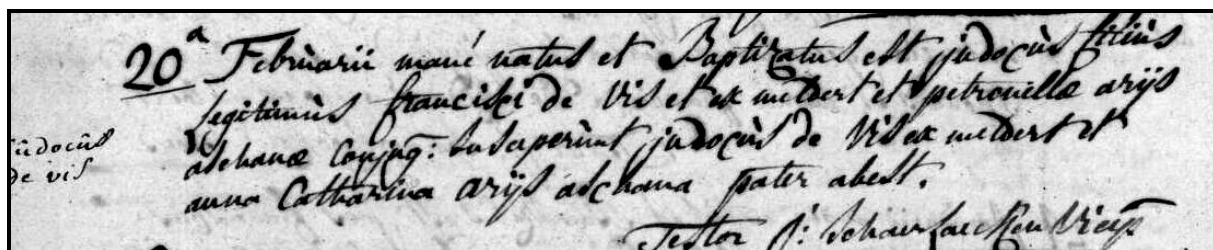 20a Februarii mane natus et Baptizatus est judocus filius
legitimus francisci de Vis et ex meldert et petronellæ arijs
aschanæ conjug: susceperunt judocus de Vis ex meldert et
judocus
de vis
anna Catharina arijs aschana pater abest.
Testor J: